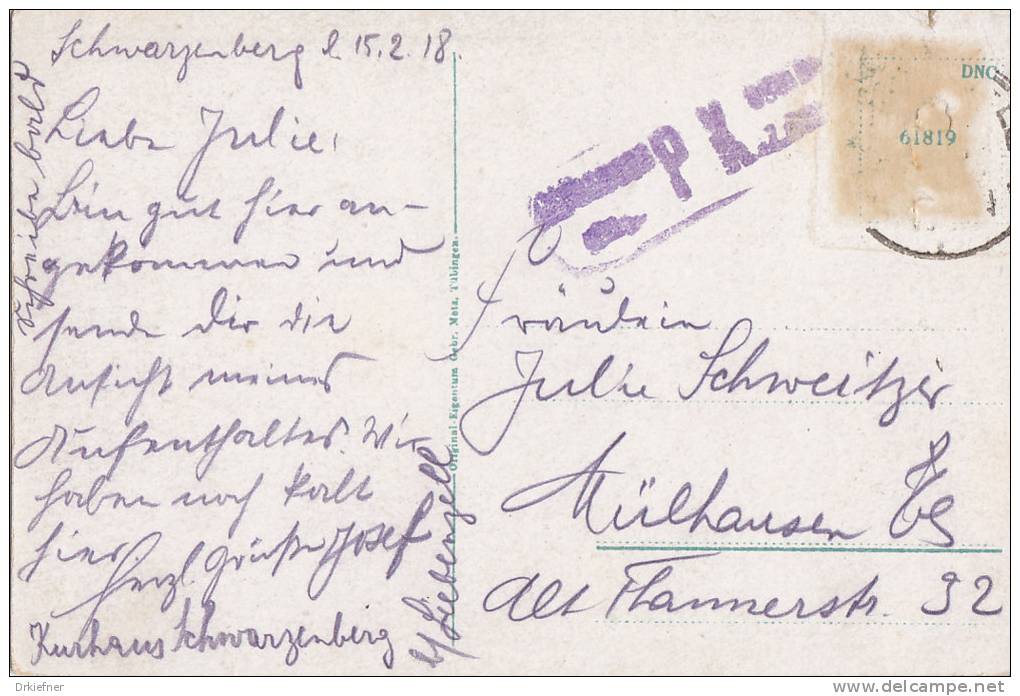 Schwarzenberg d. 15.2.18.
Liebe Julie!
Bin gut hier an-
gekommen und
sende dir die
Ansicht meines
Aufenthaltes. Wir
haben noch kalt
hier
herzl. Grüße Josef
Kurhaus Schwarzenberg
b/ Liebenzell
Schreibe bald
Original-Eigentum Gebr. Metz, Tübingen.
P.K.
DNC
61819
Fräulein
Julie Schweitzer
Mülhausen Els
Alt Thannerstr. 92
Drkiefner
www.delcampe.net